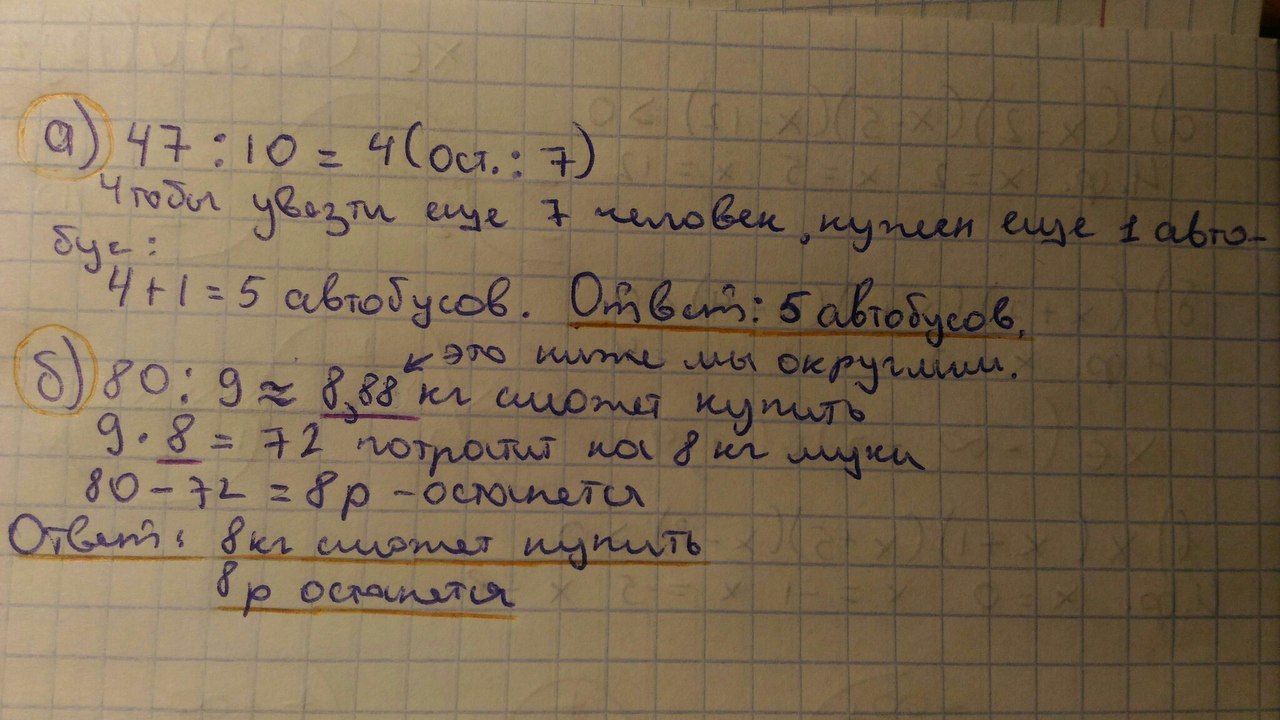 а) 47 : 10 = 4 (ост.: 7)
Чтобы увезти еще 7 человек, нужен еще 1 авто-
бус:
4 + 1 = 5 автобусов. Ответ: 5 автобусов.
это ниже мы округлим.
б) 80 : 9 ≈ 8,88 кг сможет купить
9 · 8 = 72 потратит на 8 кг муки
80 - 72 = 8 р - останется
Ответ: 8 кг сможет купить
8 р останется